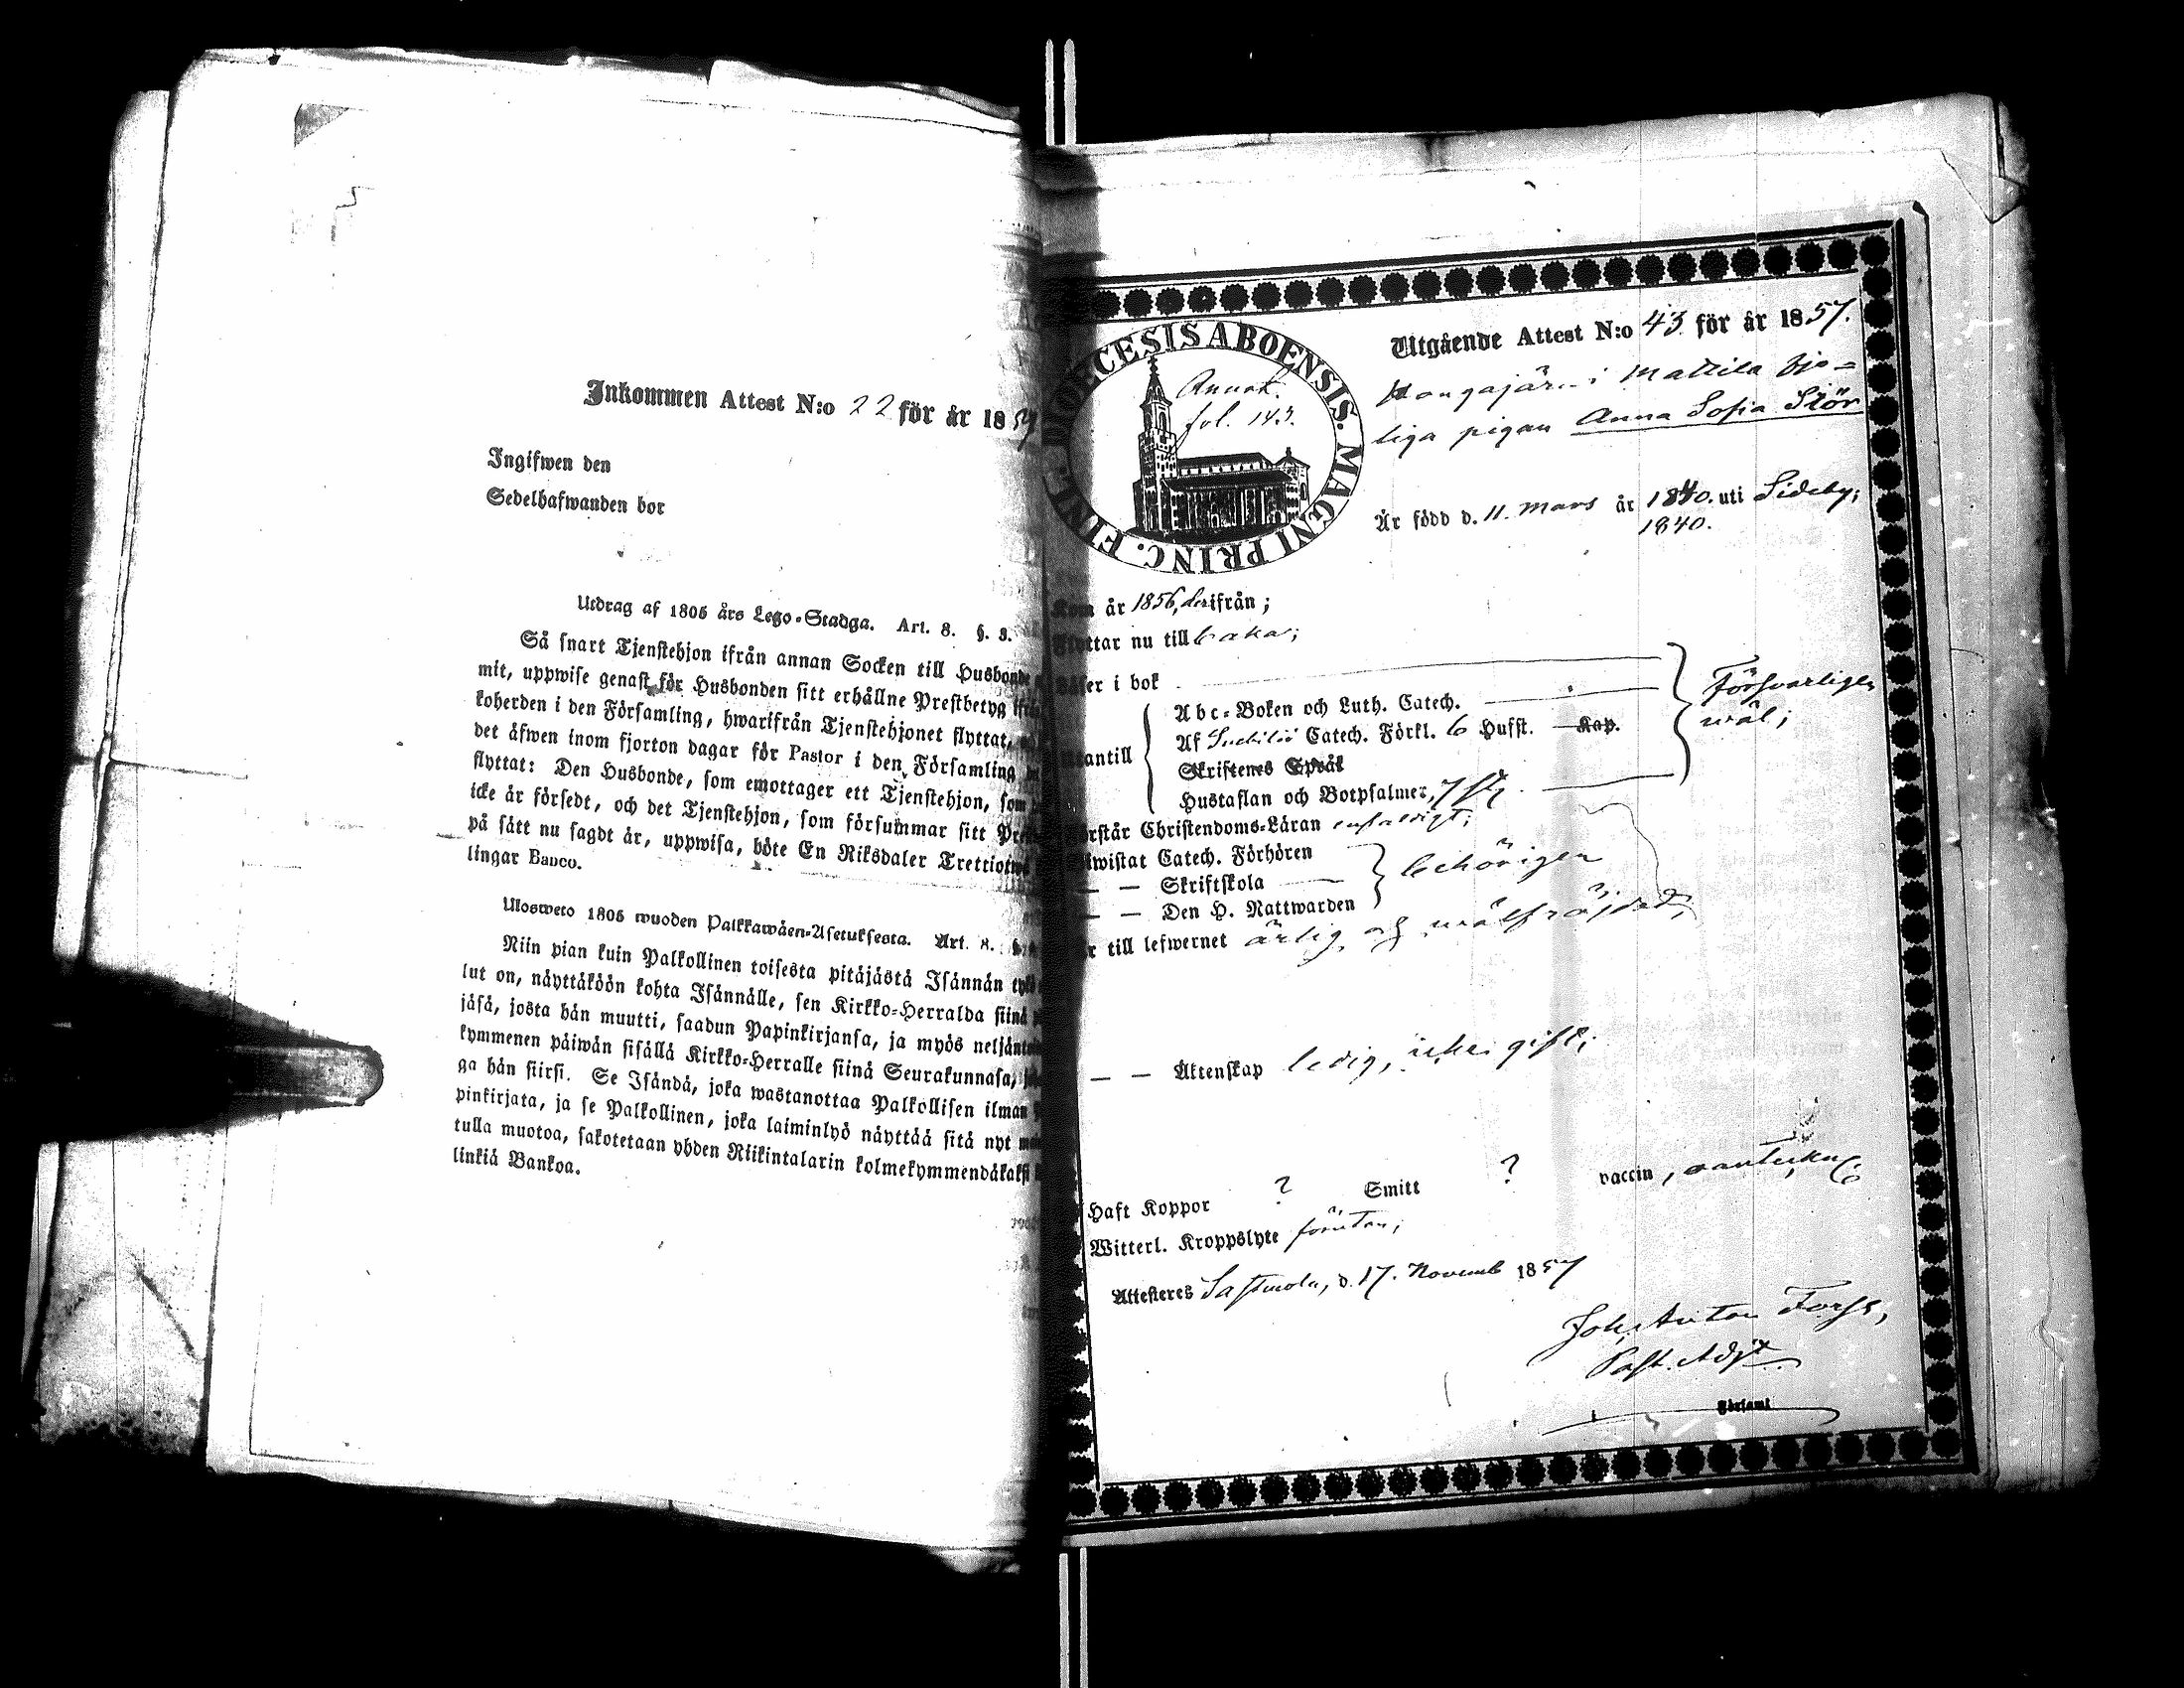 Inkommen Attest N:o 22 för år 1857
Ingifwen den
Sedelhafwanden bor
Utdrag af 1805 års Lego-Stadga. Art. 8. §. 3.
Så snart Tjenstehjon ifrån annan Socken till Husbonde
mit, uppwise genast för Husbonden sitt erhållne Prestbetyg
koherden i den Församling, hwarifrån Tjenstehjonet flyttat,
det äfwen inom fjorton dagar för Pastor i den Församling
flyttat: Den Husbonde, som emottager ett Tjenstehjon, som
icke är försedt, och det Tjenstehjon, som försummar sitt
på sätt nu sagdt är, uppwisa, böte En Riksdaler
lingar Banco.
Ulosweto 1805 wuoden Palkkawäen-Asetuksesta. Art. 8.
Niin pian kuin Palkollinen toisesta pitäjästä Isännän
lut on, näyttäköön kohta Isännälle, sen Kirkko-Herralda siinä
jäsä, josta hän muutti, saadun Papinkirjansa, ja myös
kymmenen päiwän sisällä Kirkko-Herralle siinä Seurakunnasa,
ga hän siirsi. Se Isändä, joka wastanottaa Palkollisen ilman
pinkirjata, ja se Palkollinen, joka laiminlyö näyttää sitä nyt
tulla muotoa, sakotetaan yhden Riikintalarin kolmekymmendäkaksi
linkiä Bankoa.
DIOECESIS ABOENSIS. MAGNI PRINC. FINL.
Annot.
fol. 143.
Utgående Attest N:o 43 för år 1857.
i Mattila
liga pigan Anna Sofia Stör
Är född d. 11. Mars år 1840. uti Sideby;
1840.
Kom år 1856, derifrån;
Flyttar nu till baka;
Läser i bok
Abc-Boken och Luth. Catech.
Försvarligen
Af Catech. Förkl. 6 Hufst. Kap.
wäl;
Utantill
Skriftenes Språk
Hustaflan och Botpsalmer,
Förstår Christendoms-Läran enfaldigt;
Bewistat Catech. Förhören
— — Skriftskola
behörigen
— — Den H. Nattwarden
Är till lefwernet ärlig och wälfräjdad;
— — Äktenskap ledig, icke gift;
Haft Koppor ? Smitt ? vaccin,
Witterl. Kroppslyte förutan;
Attesteres Sastmola, d. 17. Novemb 1857
Joh. Anton Forss,
Past. Adjt.
Församl